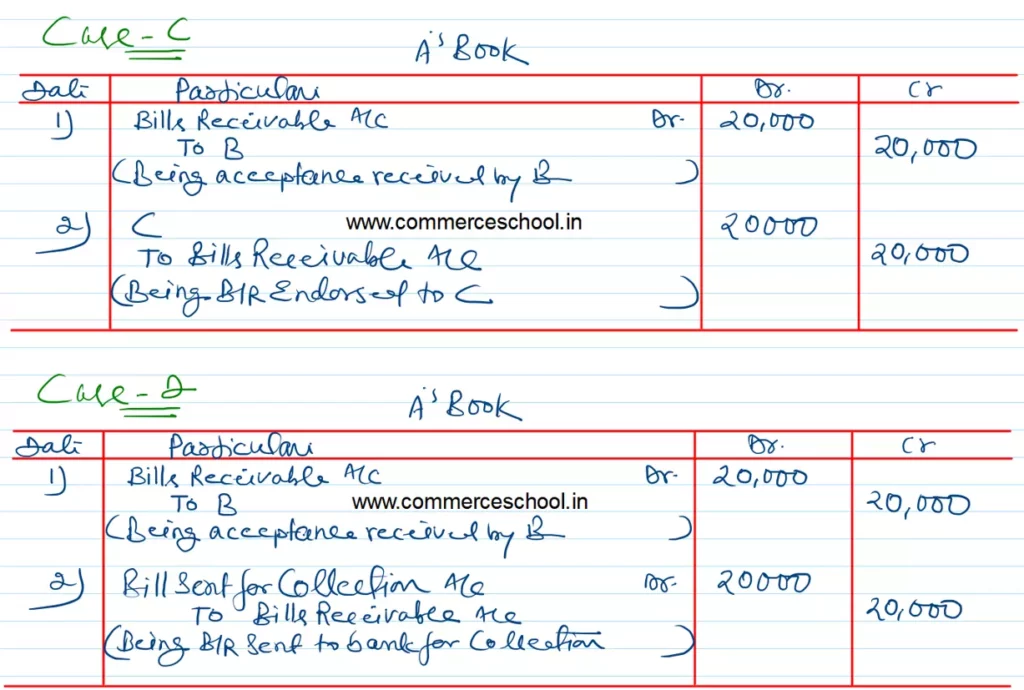 Case - C
A's Book
Date Particulars Dr. Cr
1) Bills Receivable A/C Dr. 20,000
To B 20,000
(Being acceptance received by B )
2) C www.commerceschool.in 20000
To Bills Receivable A/C 20,000
(Being B/R Endorsed to C )
Case - D
A's Book
Date Particulars Dr. Cr
1) Bills Receivable A/C Dr. 20,000
To B www.commerceschool.in 20,000
(Being acceptance received by B )
2) Bill Sent for Collection A/c Dr. 20000
To Bills Receivable A/c 20,000
(Being B/R Sent to bank for Collection )